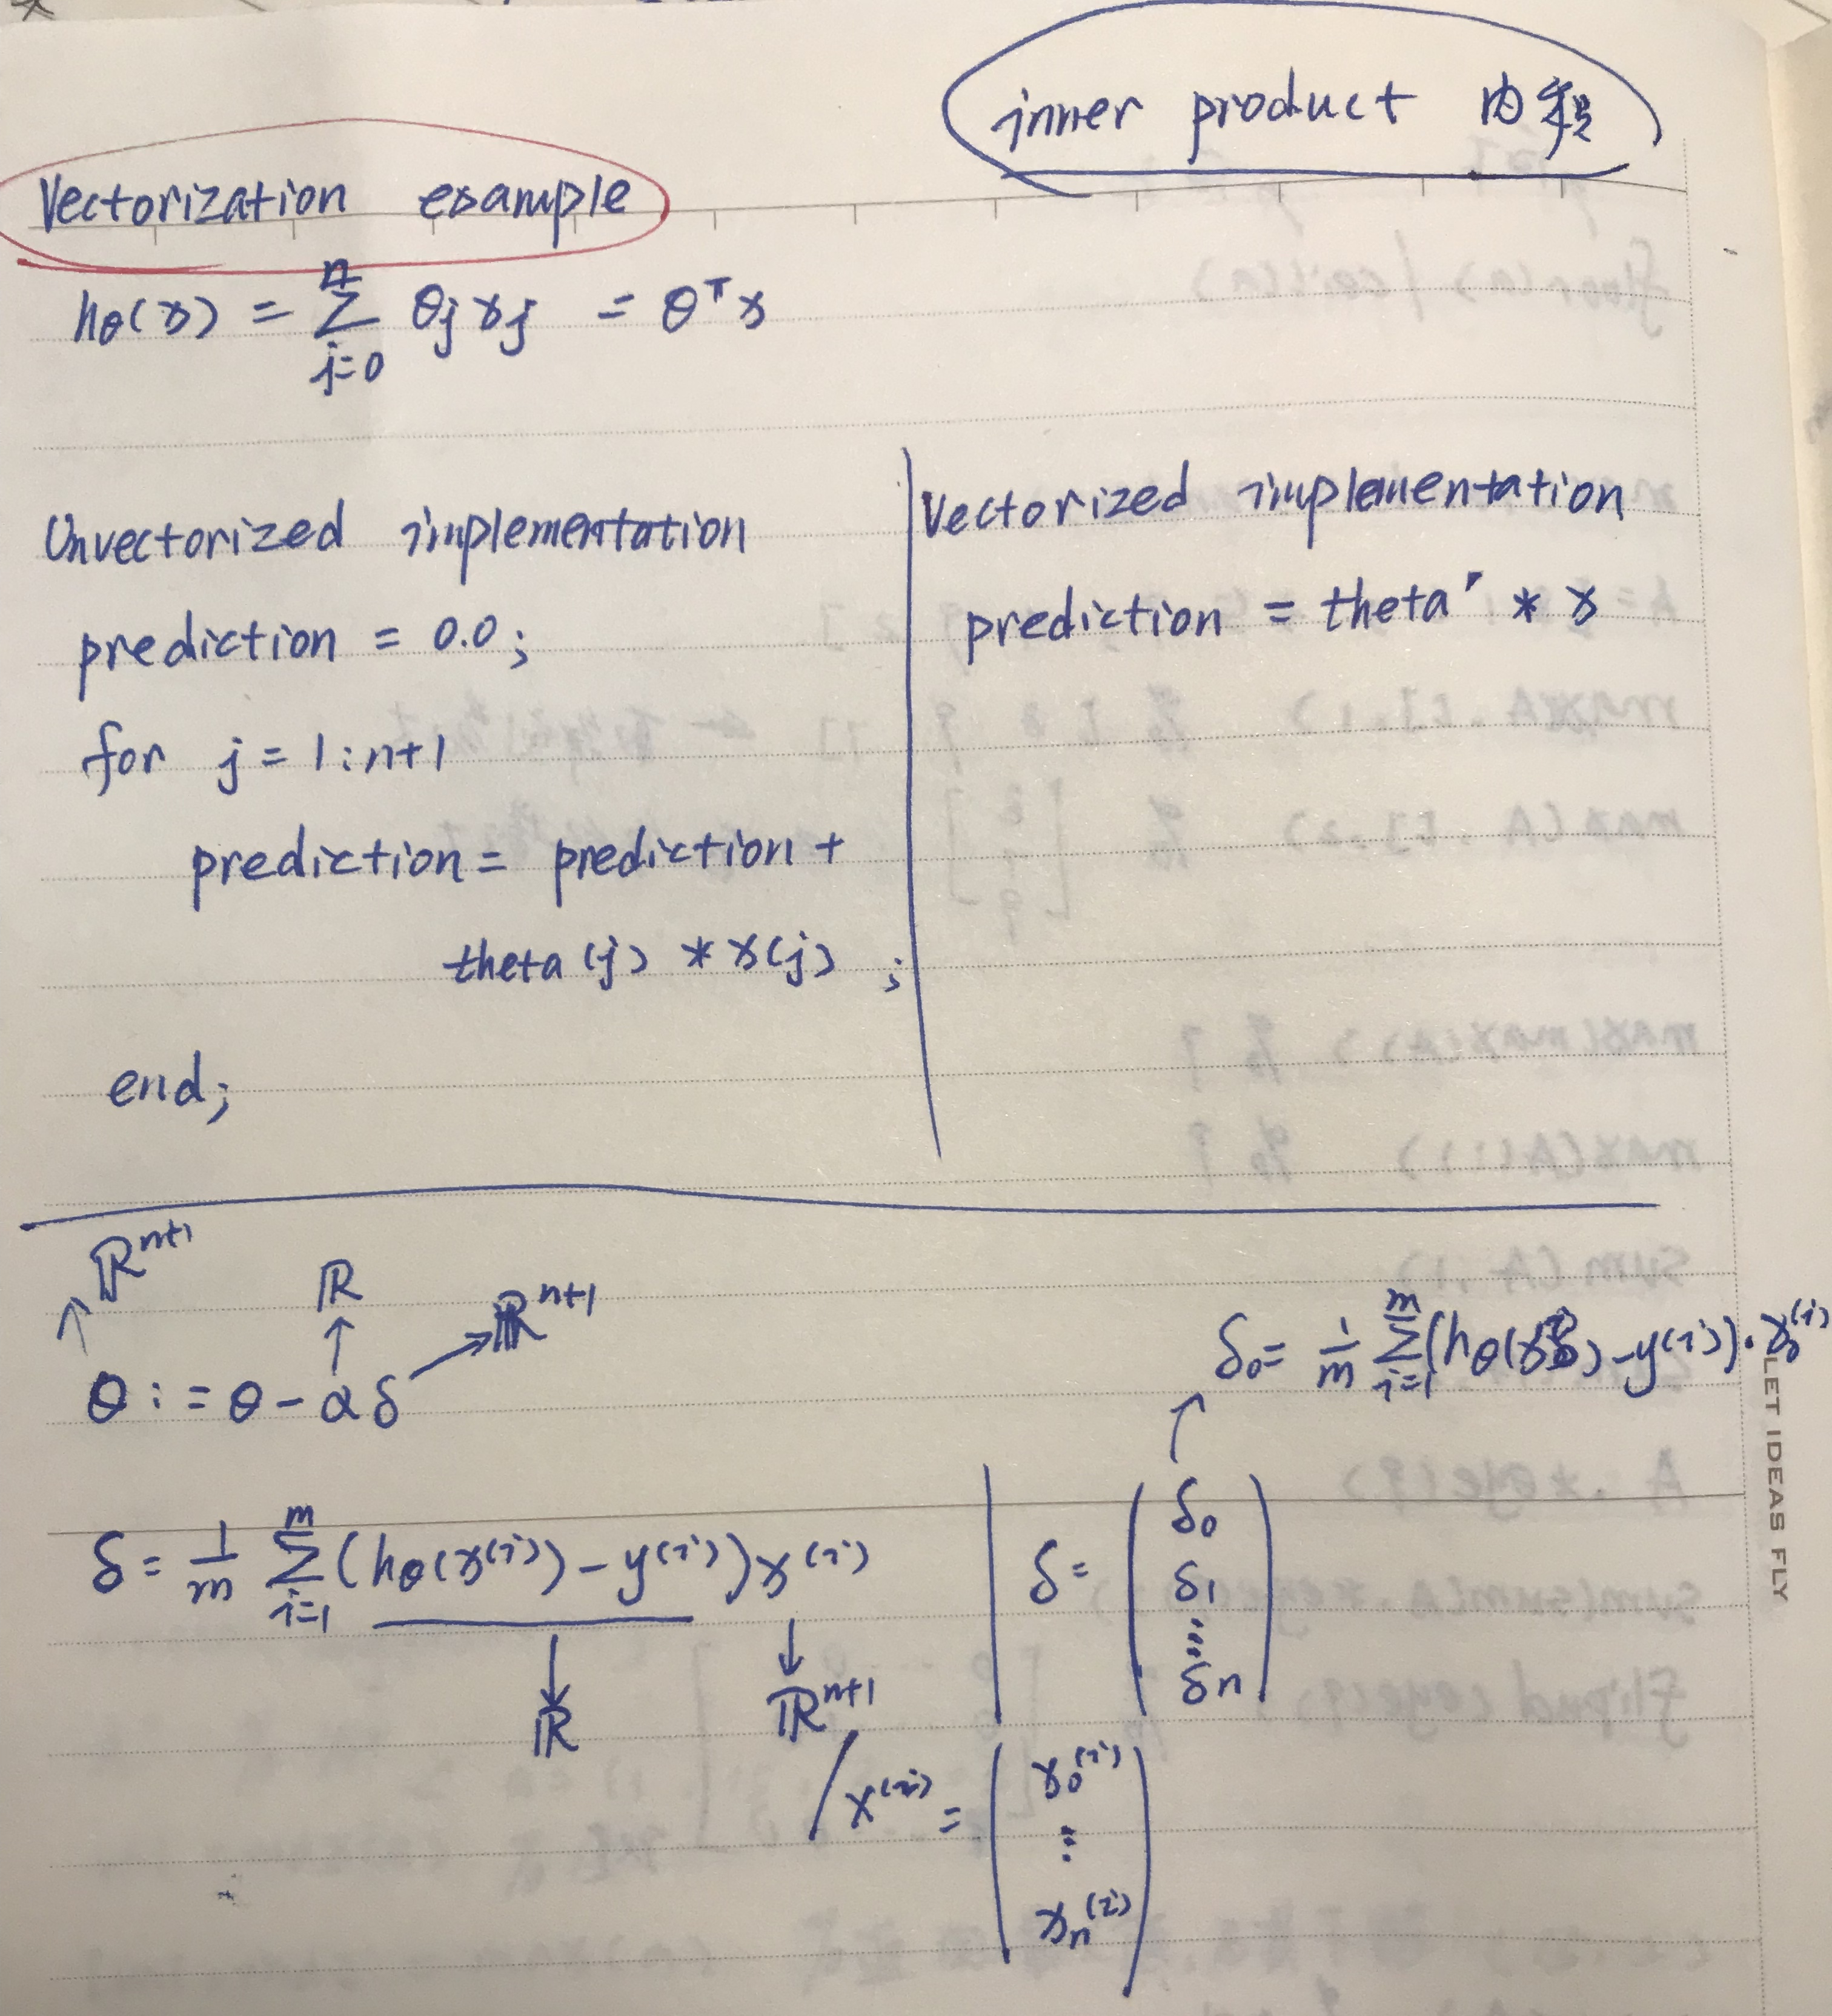 inner product 内积
Vectorization example
hθ(x) = Σ_{j=0}^{n} θj xj = θᵀx
Unvectorized implementation
prediction = 0.0;
for j = 1:n+1
prediction = prediction +
theta(j) * x(j) ;
end;
Vectorized implementation
prediction = theta' * x
ℝⁿ⁺¹
ℝ
ℝⁿ⁺¹
θ := θ - αδ
δ₀ = 1/m Σ_{i=1}^{m} (hθ(x⁽ⁱ⁾) - y⁽ⁱ⁾) · x₀⁽ⁱ⁾
δ = 1/m Σ_{i=1}^{m} (hθ(x⁽ⁱ⁾) - y⁽ⁱ⁾) x⁽ⁱ⁾
ℝ
ℝⁿ⁺¹
δ = (δ₀
δ₁
⋮
δn)
x⁽ⁱ⁾ = (x₀⁽ⁱ⁾
⋮
xn⁽ⁱ⁾)
LET IDEAS FLY